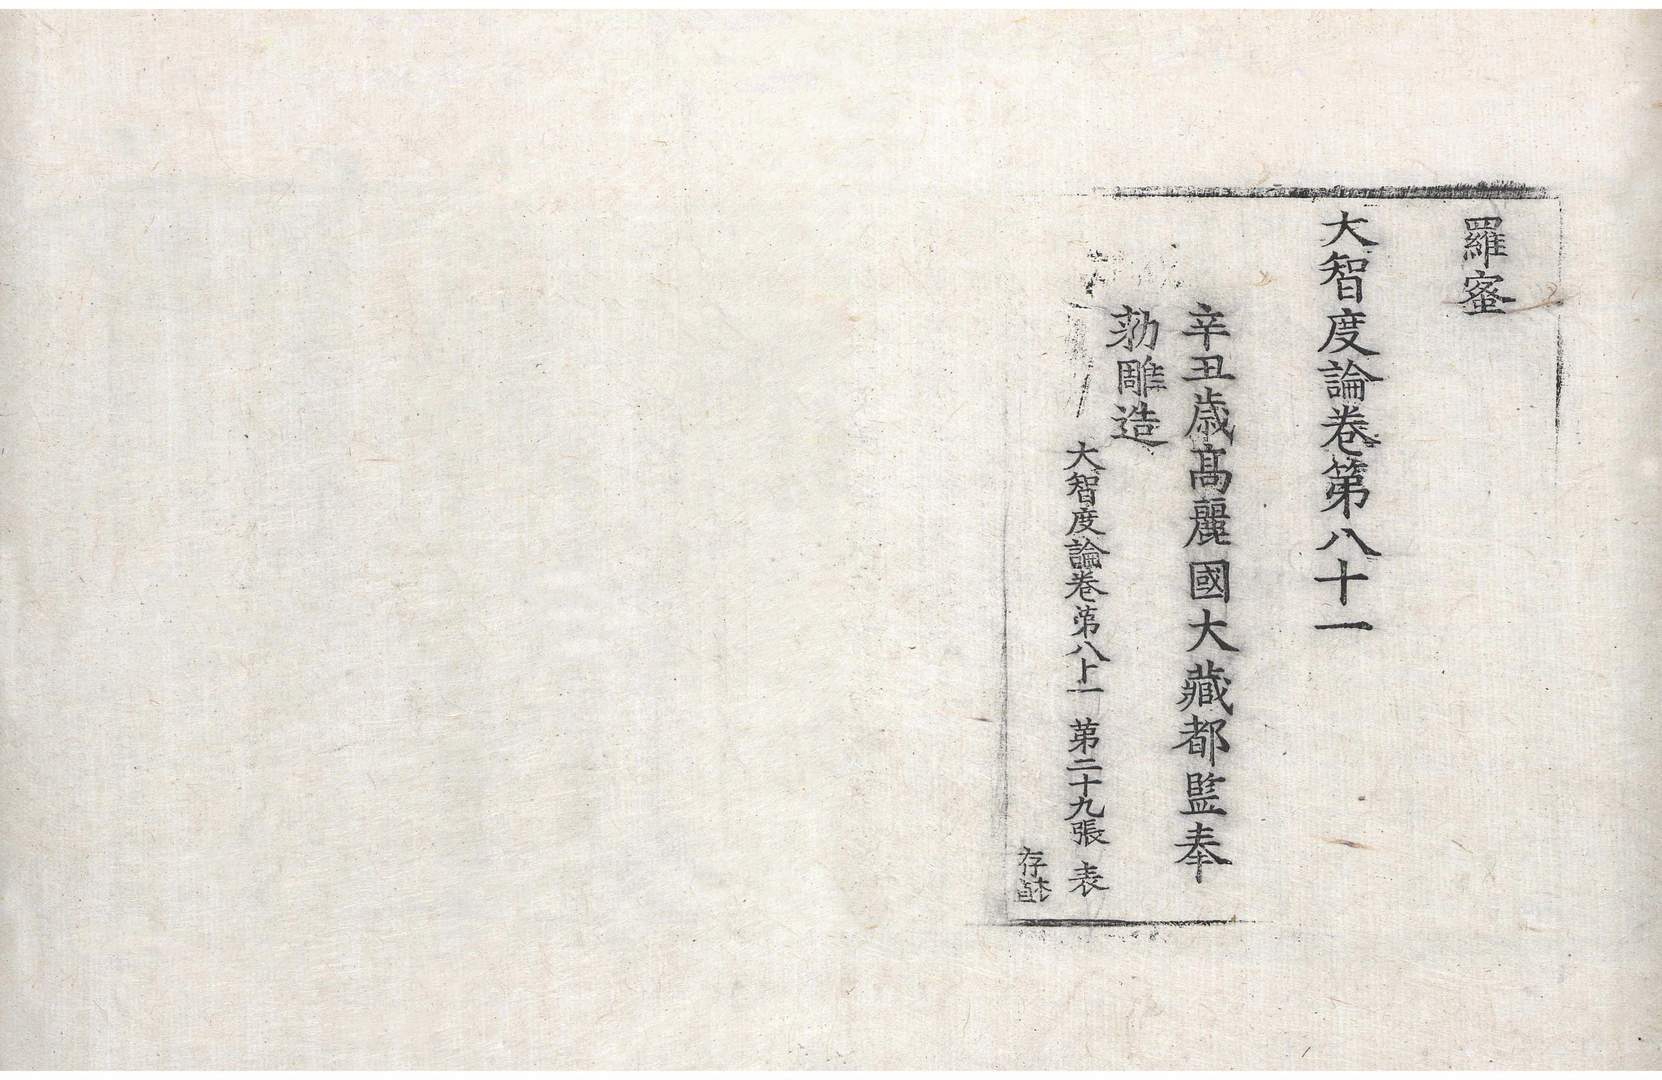 羅蜜
大智度論卷第八十一
辛丑歲高麗國大藏都監奉
勑雕造
大智度論卷第八十一 第二十九張 表
存